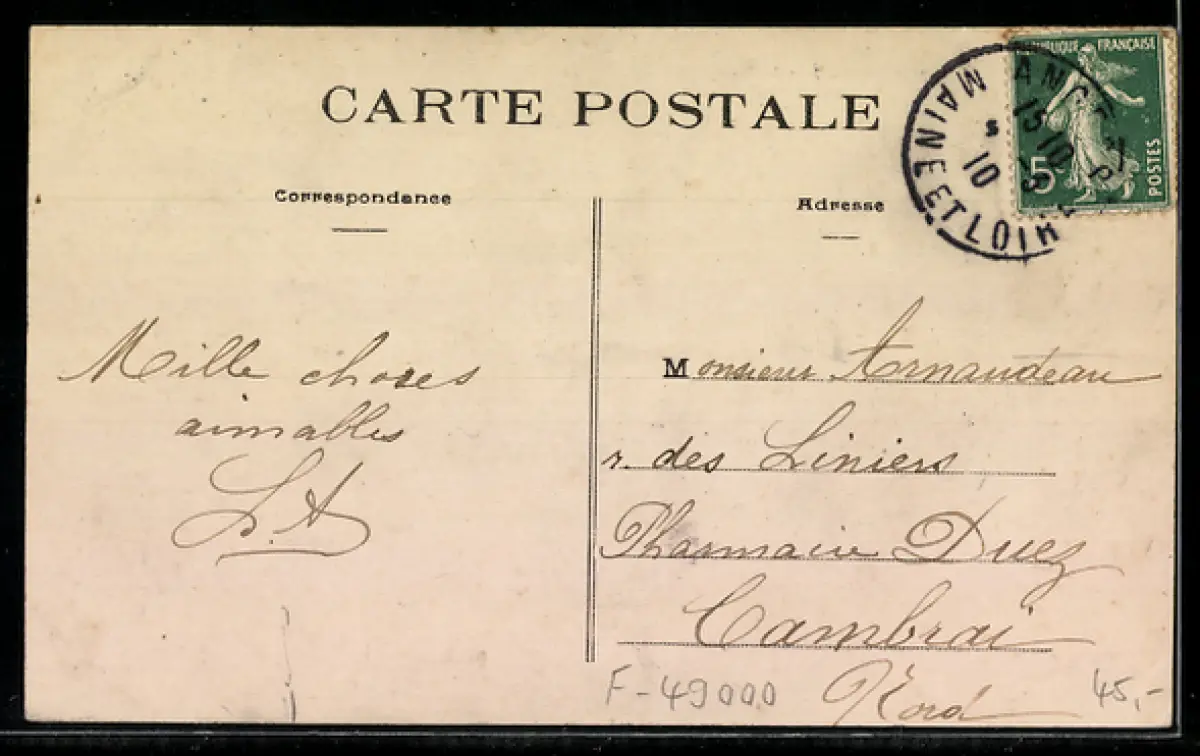 CARTE POSTALE
Correspondance
Adresse
RÉPUBLIQUE FRANÇAISE
5
POSTES
MAINE ET LOIRE
10
Mille choses
aimables
L. A
Monsieur Arnaudeau
r. des Liniers
Pharmacie Duez
Cambrai
Nord
F-49000
45,-